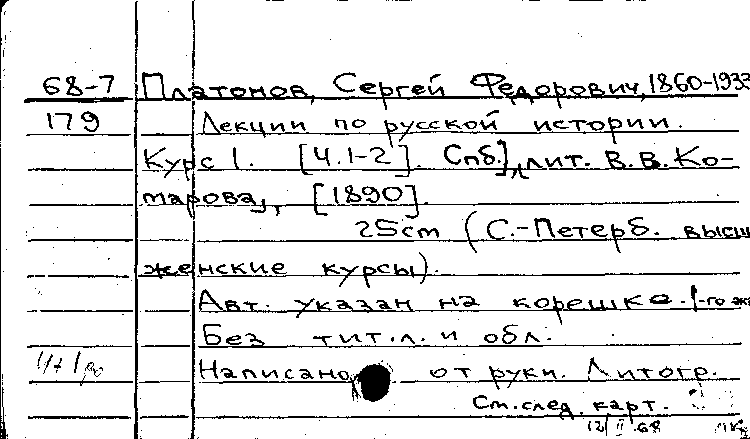 68-7 Платонов, Сергей Федорович, 1860-1933
179 Лекции по русской истории.
Курс 1. [Ч.1-2]. Спб.], лит. В.В. Ко-
марова, [1890].
25cm (С.-Петерб. высш
женские курсы).
Авт. указан на корешке. 1-го эк
Без тит. л. и обл.
Написано от руки. Литогр.
См. след. карт.
12/II 68